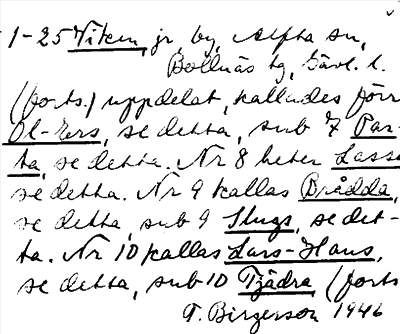 1-25 Viken, jr by, Alfta sn,
Bollnäs tg, Gävl. l.
(forts.) uppdelat, kallades förr
Ol-Ers, se detta, sub 7 Par-
ta, se detta. Nr 8 heter Lasse
se detta. Nr 9 kallas Brådda,
se detta, sub 9 Slugs, se det-
ta. Nr 10 kallas Lars-Hans,
se detta, sub 10 Tjädra (forts
T. Birgerson 1946